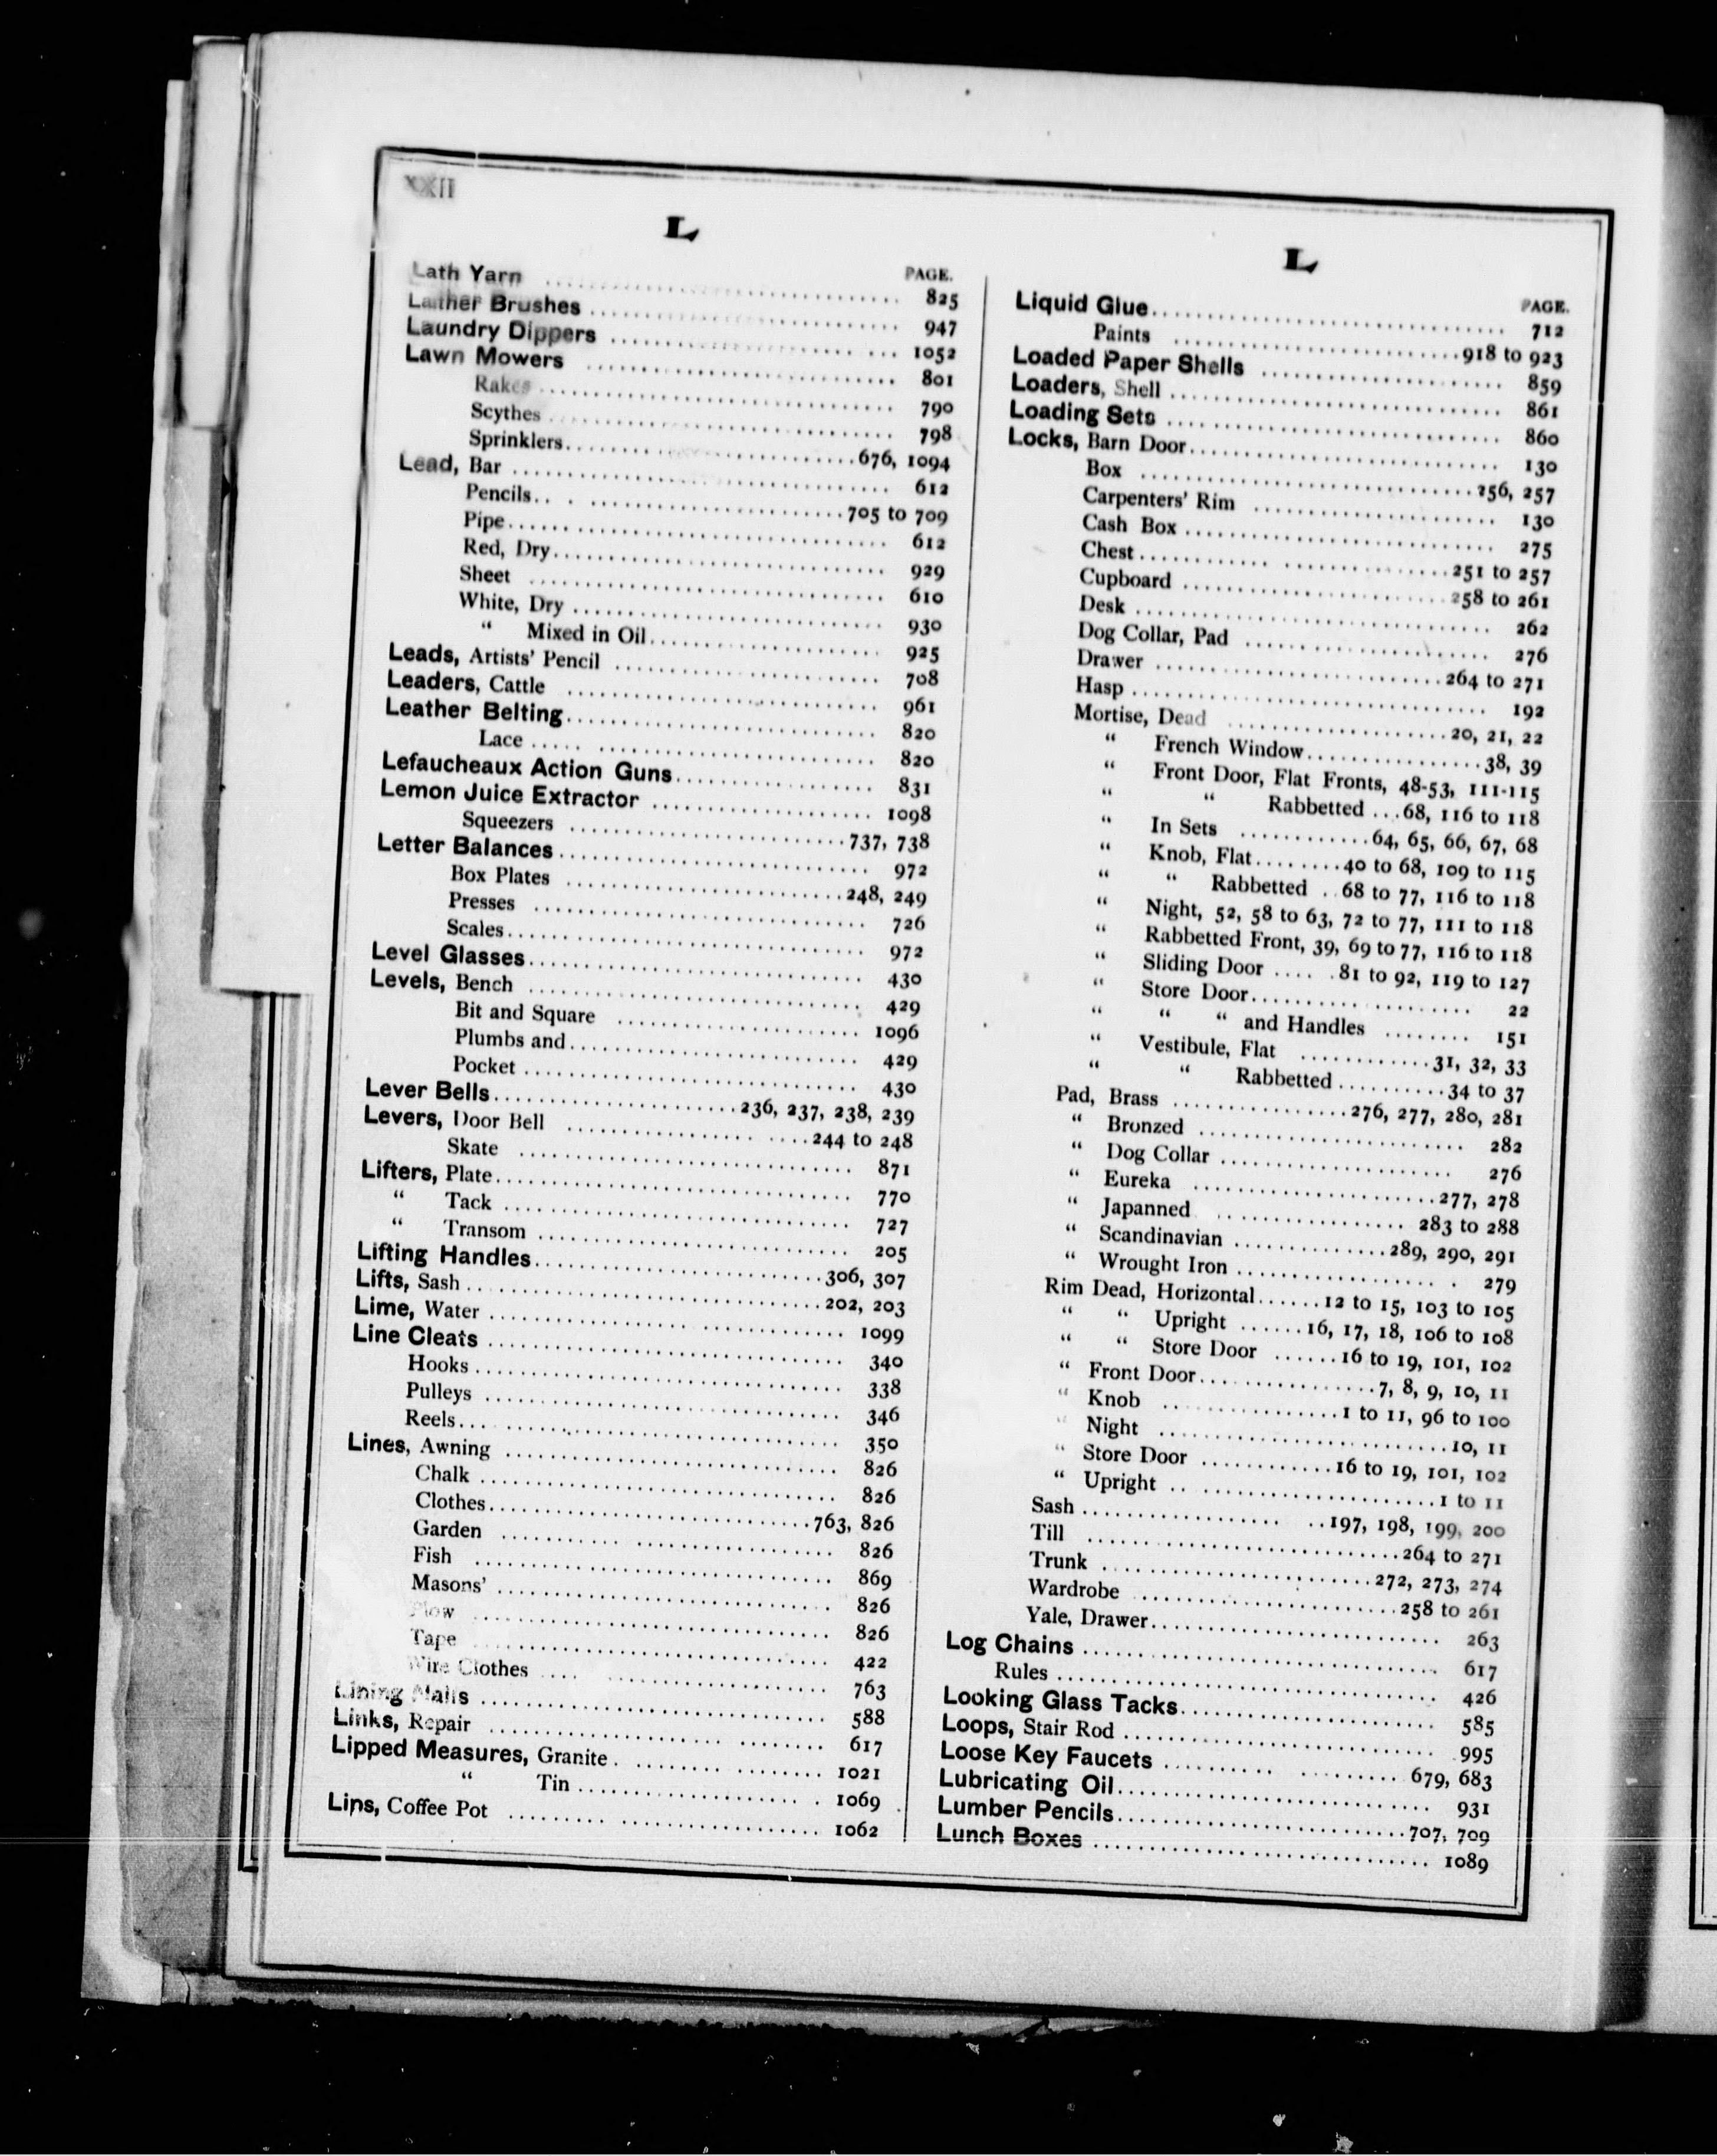 XXII
L
PAGE.
Lath Yarn ........ 825
Lather Brushes ........ 947
Laundry Dippers ........ 1052
Lawn Mowers ........ 801
Rakes ........ 790
Scythes ........ 798
Sprinklers ........ 676, 1094
Lead, Bar ........ 612
Pencils ........ 705 to 709
Pipe ........ 612
Red, Dry ........ 929
Sheet ........ 610
White, Dry ........ 930
“ Mixed in Oil ........ 925
Leads, Artists' Pencil ........ 708
Leaders, Cattle ........ 961
Leather Belting ........ 820
Lace ........ 820
Lefaucheaux Action Guns ........ 831
Lemon Juice Extractor ........ 1098
Squeezers ........ 737, 738
Letter Balances ........ 972
Box Plates ........ 248, 249
Presses ........ 726
Scales ........ 972
Level Glasses ........ 430
Levels, Bench ........ 429
Bit and Square ........ 1096
Plumbs and ........ 429
Pocket ........ 430
Lever Bells ........ 236, 237, 238, 239
Levers, Door Bell ........ 244 to 248
Skate ........ 871
Lifters, Plate ........ 770
“ Tack ........ 727
“ Transom ........ 205
Lifting Handles ........ 306, 307
Lifts, Sash ........ 202, 203
Lime, Water ........ 1099
Line Cleats ........ 340
Hooks ........ 338
Pulleys ........ 346
Reels ........ 350
Lines, Awning ........ 826
Chalk ........ 826
Clothes ........ 763, 826
Garden ........ 826
Fish ........ 869
Masons' ........ 826
Plow ........ 826
Tape ........ 422
Wire Clothes ........ 763
Lining Nails ........ 588
Links, Repair ........ 617
Lipped Measures, Granite ........ 1021
“ Tin ........ 1069
Lips, Coffee Pot ........ 1062
L
PAGE.
Liquid Glue ........ 712
Paints ........ 918 to 923
Loaded Paper Shells ........ 859
Loaders, Shell ........ 861
Loading Sets ........ 860
Locks, Barn Door ........ 130
Box ........ 256, 257
Carpenters' Rim ........ 130
Cash Box ........ 275
Chest ........ 251 to 257
Cupboard ........ 258 to 261
Desk ........ 262
Dog Collar, Pad ........ 276
Drawer ........ 264 to 271
Hasp ........ 192
Mortise, Dead ........ 20, 21, 22
“ French Window ........ 38, 39
“ Front Door, Flat Fronts, 48-53, 111-115
“ “ Rabbetted ... 68, 116 to 118
“ In Sets ........ 64, 65, 66, 67, 68
“ Knob, Flat ........ 40 to 68, 109 to 115
“ “ Rabbetted .. 68 to 77, 116 to 118
“ Night, 52, 58 to 63, 72 to 77, 111 to 118
“ Rabbetted Front, 39, 69 to 77, 116 to 118
“ Sliding Door ..... 81 to 92, 119 to 127
“ Store Door ........ 22
“ “ “ and Handles ........ 151
“ Vestibule, Flat ........ 31, 32, 33
“ “ Rabbetted ........ 34 to 37
Pad, Brass ........ 276, 277, 280, 281
“ Bronzed ........ 282
“ Dog Collar ........ 276
“ Eureka ........ 277, 278
“ Japanned ........ 283 to 288
“ Scandinavian ........ 289, 290, 291
“ Wrought Iron ........ 279
Rim Dead, Horizontal ...... 12 to 15, 103 to 105
“ “ Upright ...... 16, 17, 18, 106 to 108
“ “ Store Door ...... 16 to 19, 101, 102
“ Front Door ........ 7, 8, 9, 10, 11
“ Knob ........ 1 to 11, 96 to 100
“ Night ........ 10, 11
“ Store Door ........ 16 to 19, 101, 102
“ Upright ........ 1 to 11
Sash ........ 197, 198, 199, 200
Till ........ 264 to 271
Trunk ........ 272, 273, 274
Wardrobe ........ 258 to 261
Yale, Drawer ........ 263
Log Chains ........ 617
Rules ........ 426
Looking Glass Tacks ........ 585
Loops, Stair Rod ........ 995
Loose Key Faucets ........ 679, 683
Lubricating Oil ........ 931
Lumber Pencils ........ 707, 709
Lunch Boxes ........ 1089